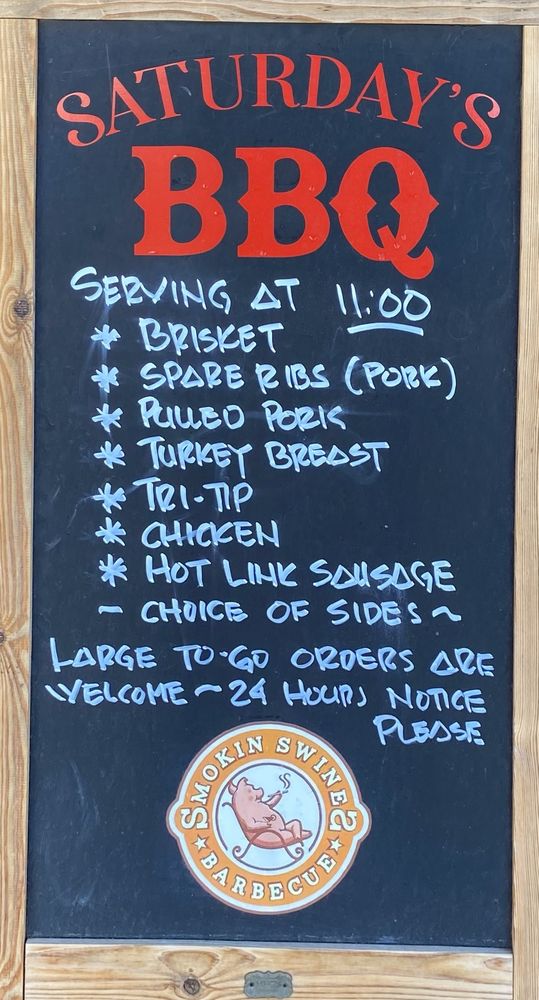 SATURDAY'S
BBQ
SERVING AT 11:00
* BRISKET
* SPARE RIBS (PORK)
* PULLED PORK
* TURKEY BREAST
* TRI-TIP
* CHICKEN
* HOT LINK SAUSAGE
~ CHOICE OF SIDES ~
LARGE TO-GO ORDERS ARE
WELCOME ~ 24 HOURS NOTICE
PLEASE
SMOKIN SWINES
★ BARBECUE ★